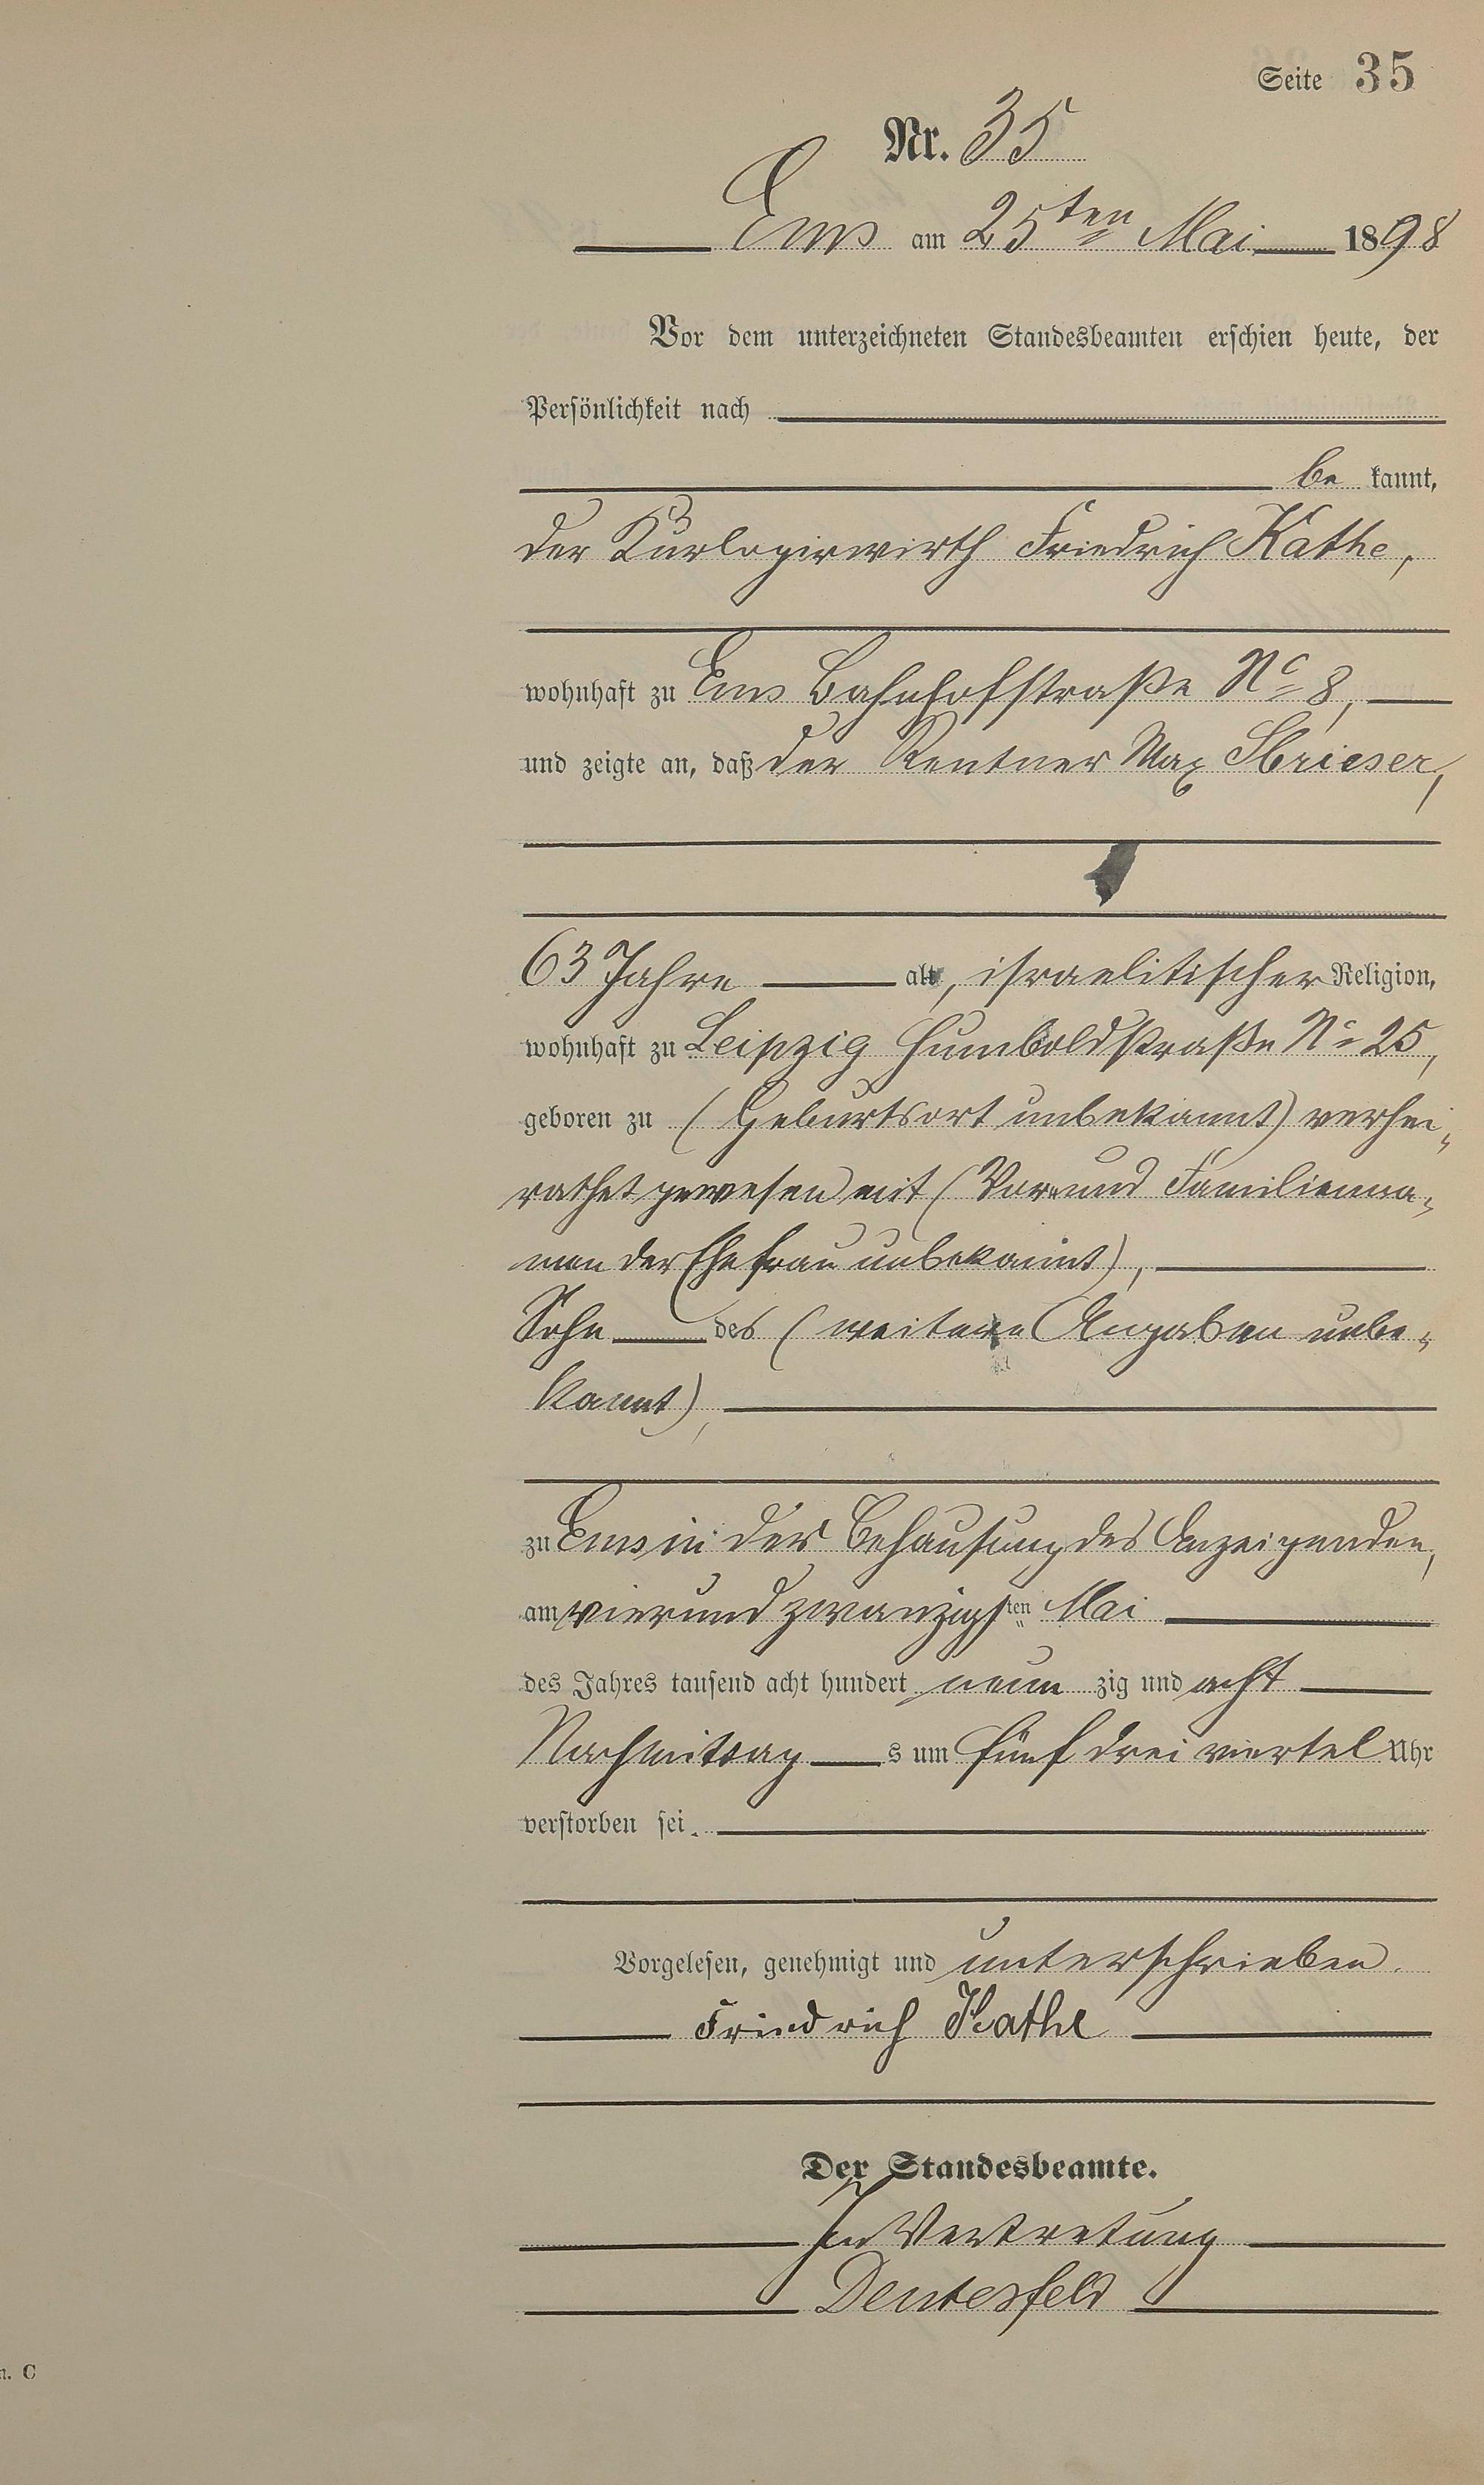 Seite 35
Nr. 35
Ems am 25ten Mai 1898
Vor dem unterzeichneten Standesbeamten erschien heute, der
Persönlichkeit nach
be kannt,
der Kurlogirwirth Friedrich Kathe,
wohnhaft zu Ems Bahnhofstraße No 8,
und zeigte an, daß der Rentner Max
63 Jahre alt, israelitischer Religion,
wohnhaft zu Leipzig Humboldstraße No 25,
geboren zu (Geburtsort unbekannt) verhei-
rathet gewesen mit (Vor und Familienna-
men der Ehefrau unbekannt),
Sohn des (weitere Angaben unbe-
kannt),
zu Ems in der Behausung des Anzeigenden,
am vierundzwanzigsten Mai
des Jahres tausend acht hundert neun zig und acht
Nachmittag s um fünf drei viertel Uhr
verstorben sei.
Vorgelesen, genehmigt und unterschrieben.
Friedrich Kathe
Der Standesbeamte.
In Vertretung
n. C